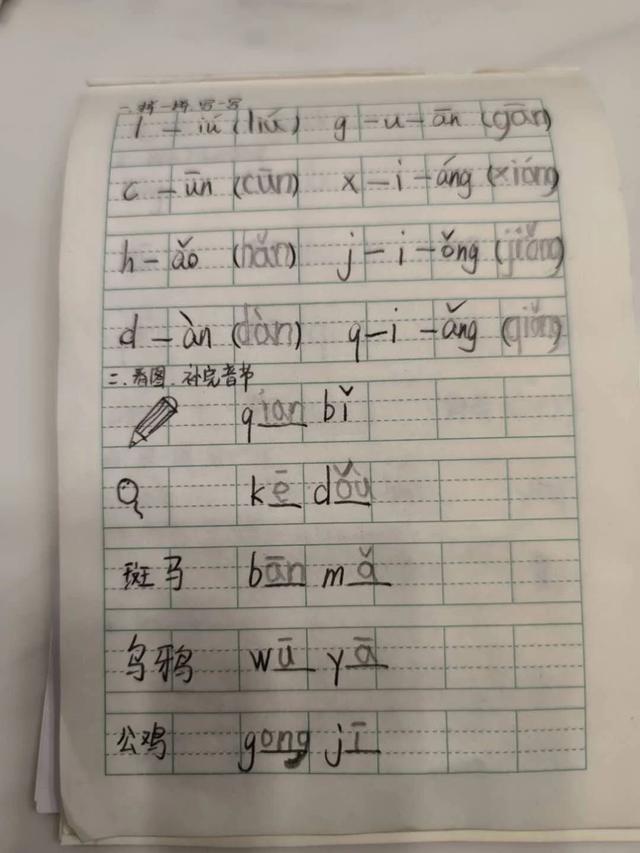 一、拼一拼,写一写
l - iú (liú) g - u - ān (gān)
c - ūn (cūn) x - i - áng (xiáng)
h - ǎo (hǎn) j - i - ǒng (jiǒng)
d - àn (dàn) q - i - ǎng (qiǒng)
二.看图、补完音节
qian bǐ
kē dǒu
斑马 bān mǎ
乌鸦 wū yā
公鸡 gong jī